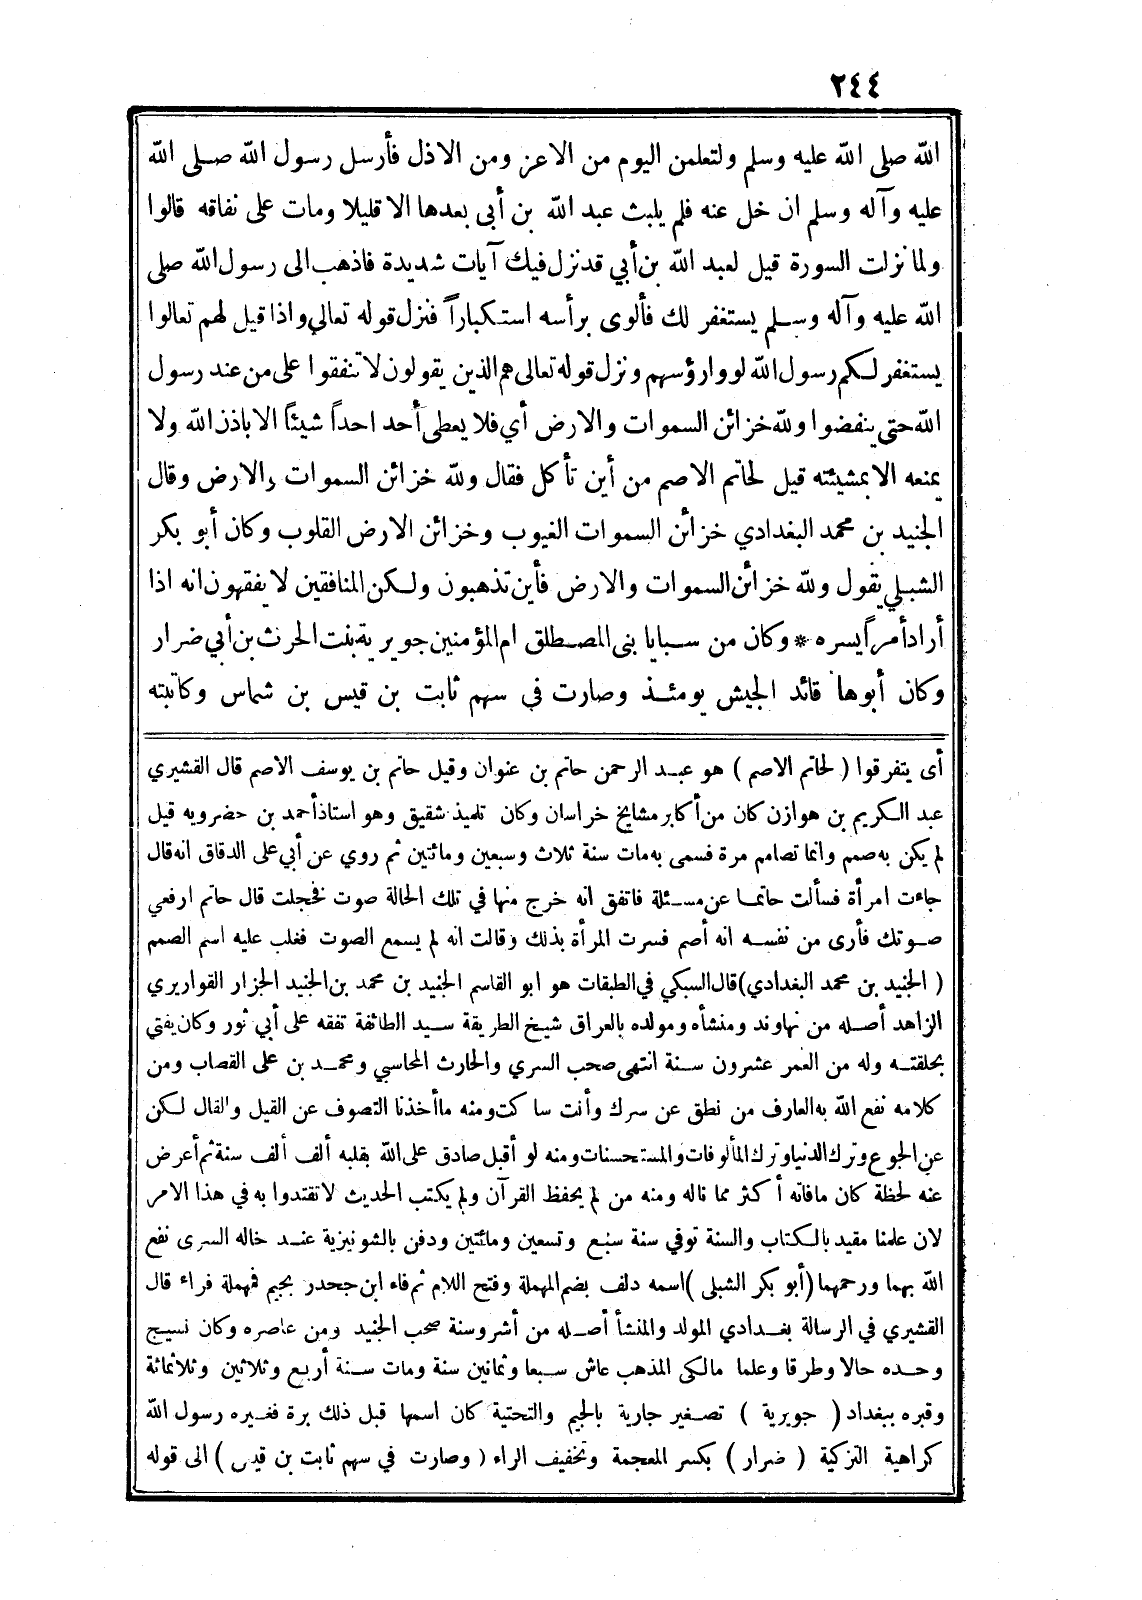 ٢٤٤
الله صلى الله عليه وسلم ولتعلمن اليوم من الاعز ومن الاذل فأرسل رسول الله صلى الله
عليه وآله وسلم ان خل عنه فلم يلبث عبد الله بن أبى بعدها الا قليلا ومات على نفاقه قالوا
ولما نزلت السورة قيل لعبد الله بن أبي قد نزل فيك آيات شديدة فاذهب الى رسول الله صلى
الله عليه وآله وسلم يستغفر لك فألوى برأسه استكباراً فنزل قوله تعالى واذا قيل لهم تعالوا
يستغفر لكم رسول الله لووا رؤسهم ونزل قوله تعالى هم الذين يقولون لا تنفقوا على من عند رسول
الله حتى ينفضوا ولله خزائن السموات والارض أي فلا يعطى أحد احداً شيئاً الا باذن الله ولا
يمنعه الا بمشيئته قيل لحاتم الاصم من أين تأكل فقال ولله خزائن السموات والارض وقال
الجنيد بن محمد البغدادي خزائن السموات الغيوب وخزائن الارض القلوب وكان أبو بكر
الشبلي يقول ولله خزائن السموات والارض فأين تذهبون ولكن المنافقين لا يفقهون انه اذا
أراد أمراً يسره * وكان من سبايا بنى المصطلق ام المؤمنين جويرية بنت الحرث بن أبي ضرار
وكان أبوها قائد الجيش يومئذ وصارت في سهم ثابت بن قيس بن شماس وكاتبته
أى يتفرقوا ( لحاتم الاصم ) هو عبد الرحمن حاتم بن عنوان وقيل حاتم بن يوسف الاصم قال القشيري
عبد الكريم بن هوازن كان من أكابر مشايخ خراسان وكان تلميذ شقيق وهو استاذ أحمد بن حضرويه قيل
لم يكن به صمم وانما تصامم مرة فسمى به مات سنة ثلاث وسبعين ومائتين ثم روي عن أبي على الدقاق انه قال
جاءت امرأة فسألت حاتما عن مسئلة فاتفق انه خرج منها في تلك الحالة صوت فخجلت قال حاتم ارفعي
صوتك فأرى من نفسه انه أصم فسرت المرأة بذلك وقالت انه لم يسمع الصوت فغلب عليه اسم الصمم
( الجنيد بن محمد البغدادي) قال السبكي في الطبقات هو ابو القاسم الجنيد بن محمد بن الجنيد الجزار القواريري
الزاهد أصله من نهاوند ومنشأه ومولده بالعراق شيخ الطريقة سيد الطائفة تفقه على أبي ثور وكان يفتي
بحلقته وله من العمر عشرون سنة انتهى صحب السري والحارث المحاسبي ومحمد بن على القصاب ومن
كلامه نفع الله به العارف من نطق عن سرك وأنت ساكت ومنه ما أخذنا التصوف عن القيل والقال لكن
عن الجوع وترك الدنيا وترك المألوفات والمستحسنات ومنه لو أقبل صادق على الله بقلبه ألف ألف سنة ثم أعرض
عنه لحظة كان ما فاته أكثر مما ناله ومنه من لم يحفظ القرآن ولم يكتب الحديث لا تقتدوا به في هذا الامر
لان علمنا مقيد بالكتاب والسنة توفي سنة سبع وتسعين ومائتين ودفن بالشونيزية عند خاله السرى نفع
الله بهما ورحمهما (أبو بكر الشبلى ) اسمه دلف بضم المهملة وفتح اللام ثم فاء ابن جحدر بجيم فمهملة فراء قال
القشيري في الرسالة بغدادي المولد والمنشأ أصله من أشروسنة صحب الجنيد ومن عاصره وكان نسيج
وحده حالا وطرقا وعلما مالكى المذهب عاش سبعا وثمانين سنة ومات سنة أربع وثلاثين وثلاثمائة
وقبره ببغداد ( جويرية ) تصغير جارية بالجيم والتحتية كان اسمها قبل ذلك برة فغيره رسول الله
كراهية التزكية ( ضرار ) بكسر المعجمة وتخفيف الراء ( وصارت في سهم ثابت بن قيس ) الى قوله